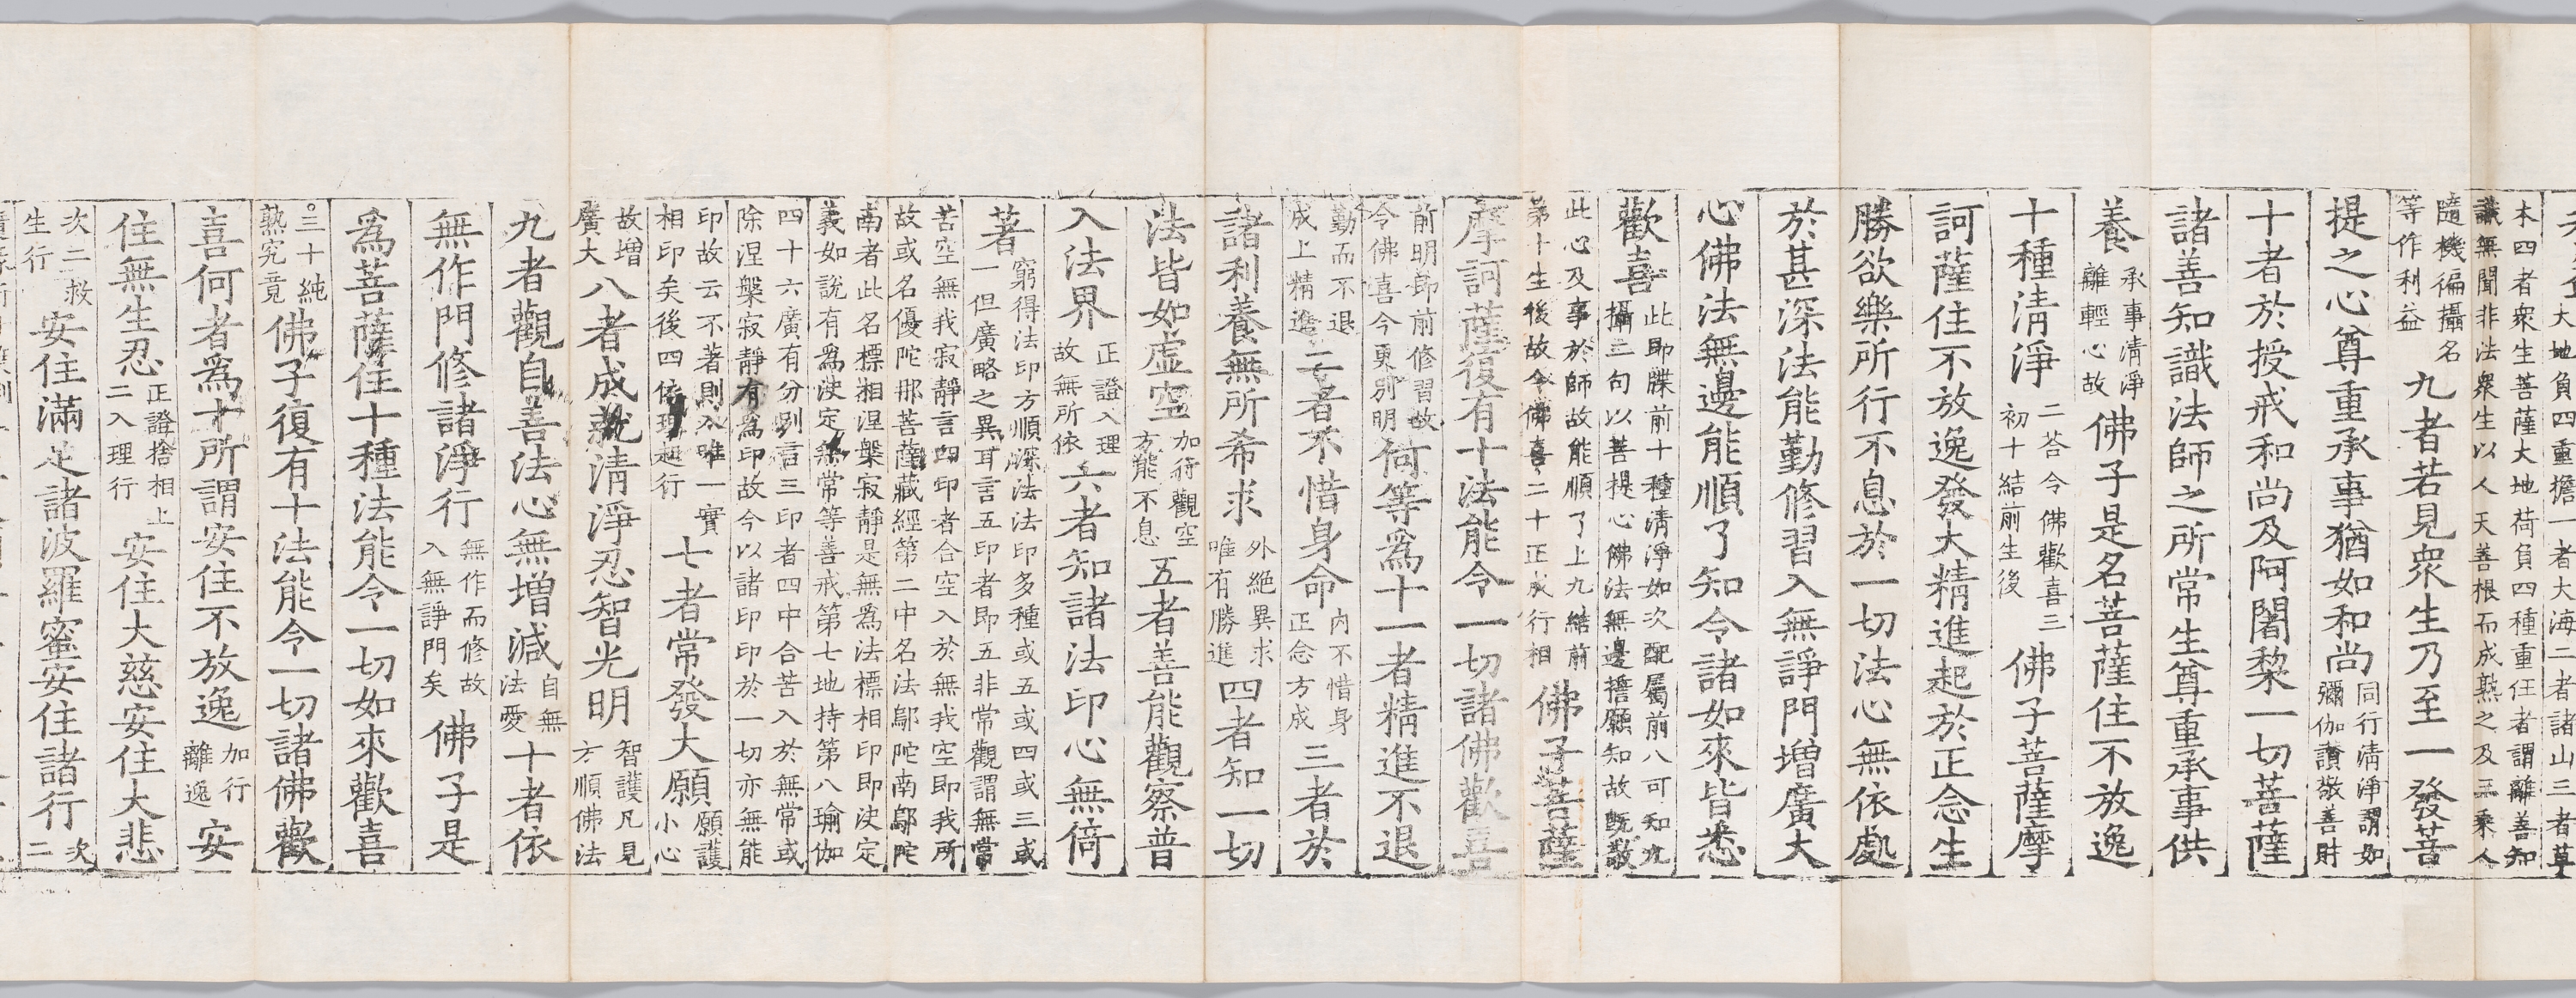 大地負四重擔一者大海二者諸山三者草
木四者衆生菩薩大地荷負四種重任者謂離善知
識無聞非法衆生以人天善根而成熟之及三乘人
隨機徧攝名
等作利益
九者若見衆生乃至一發菩
提之心尊重承事猶如和尚
同行清淨謂如
彌伽讚敬善財
十者於授戒和尚及阿闍黎一切菩薩
諸善知識法師之所常生尊重承事供
養
承事清淨
離輕心故
佛子是名菩薩住不放逸
十種清淨
二荅令佛歡喜三
初十結前生後
佛子菩薩摩
訶薩住不放逸發大精進起於正念生
勝欲樂所行不息於一切法心無依處
於甚深法能勤修習入無諍門增廣大
心佛法無邊能順了知令諸如來皆悉
歡喜
此即牒前十種清淨如次配屬前八可知九
攝三句以菩提心佛法無邊擔願知故既敬
此心及事於師故能順了上九結前
第十生後故令佛喜二十正成行相
佛子菩薩
摩訶薩復有十法能令一切諸佛歡喜
前明即前修習故
令佛喜今更別明
何等爲十一者精進不退
勤而不退
成上精進
二者不惜身命
內不惜身
正念方成
三者於
諸利養無所希求
外絕異求
唯有勝進
四者知一切
法皆如虛空
加行觀空
方能不息
五者善能觀察普
入法界
正證入理
故無所依
六者知諸法印心無倚
著
窮得法印方順深法法印多種或五或四或三或
一但廣略之異耳言五印者即五非常觀謂無常
苦空無我寂靜言四印者合空入於無我空即我所
故或名優陀那菩薩藏經第二中名法鄔陀南鄔陀
南者此名標相涅槃寂靜是無爲法標相印即決定
義如說有爲決定無常等善戒第七地持第八瑜伽
四十六廣有分別言三印者四中合苦入於無常或
除涅槃寂靜有爲印故今以諸印印於一切亦無能
印故云不著則入唯一實
相印矣後四依理起行
七者常發大願
願護
小心
故增
廣大
八者成就清淨忍智光明
智護凡見
方順佛法
九者觀自善法心無增減
自無
法愛
十者依
無作門修諸淨行
無作而修故
入無諍門矣
佛子是
爲菩薩住十種法能令一切如來歡喜
三十純
熟究竟
佛子復有十法能令一切諸佛歡
喜何者爲十所謂安住不放逸
加行
離逸
安
住無生忍
正證捨相上
二入理行
安住大慈安住大悲
次二救
生行
安住滿足諸波羅蜜安住諸行
次
二